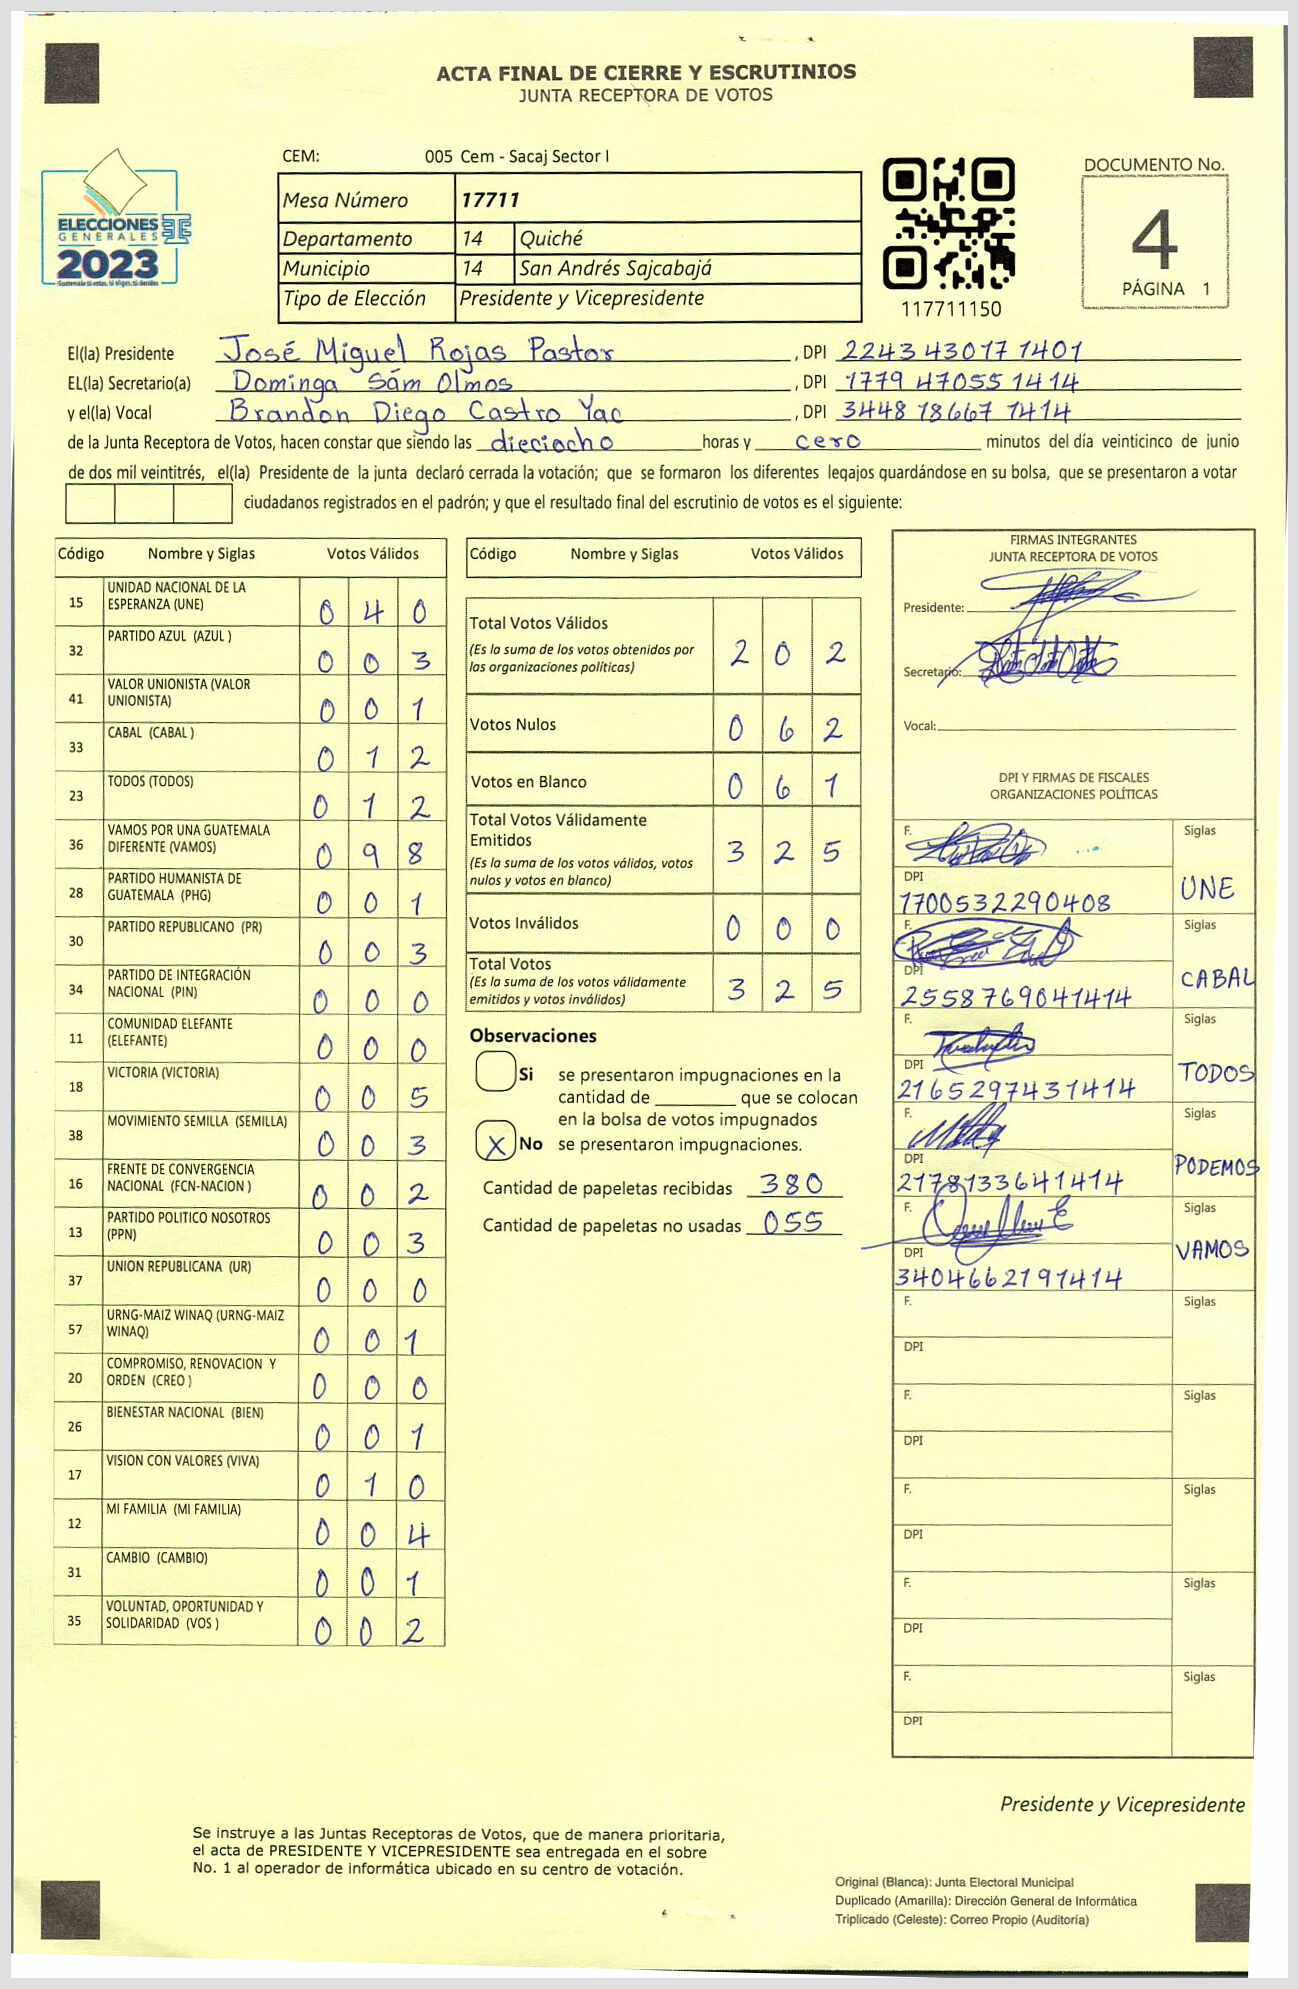 ACTA FINAL DE CIERRE Y ESCRUTINIOS
JUNTA RECEPTORA DE VOTOS
ELECCIONES
GENERALES
2023
Guatemala tú votas, tú eliges, tú decides
CEM: 005 Cem - Sacaj Sector I
Mesa Número 17711
Departamento 14 Quiché
Municipio 14 San Andrés Sajcabajá
Tipo de Elección Presidente y Vicepresidente
117711150
DOCUMENTO No.
4
PÁGINA 1
El(la) Presidente José Miguel Rojas Pastor, DPI 2243 43017 1401
EL(la) Secretario(a) Dominga Sám Olmos, DPI 1779 47055 1414
y el(la) Vocal Brandon Diego Castro Yac, DPI 3448 18667 1414
de la Junta Receptora de Votos, hacen constar que siendo las dieciocho horas y cero minutos del día veinticinco de junio
de dos mil veintitrés, el(la) Presidente de la junta declaró cerrada la votación; que se formaron los diferentes legajos quardándose en su bolsa, que se presentaron a votar
ciudadanos registrados en el padrón; y que el resultado final del escrutinio de votos es el siguiente:
Código Nombre y Siglas Votos Válidos
15 UNIDAD NACIONAL DE LA ESPERANZA (UNE) 0 4 0
32 PARTIDO AZUL (AZUL ) 0 0 3
41 VALOR UNIONISTA (VALOR UNIONISTA) 0 0 1
33 CABAL (CABAL ) 0 1 2
23 TODOS (TODOS) 0 1 2
36 VAMOS POR UNA GUATEMALA DIFERENTE (VAMOS) 0 9 8
28 PARTIDO HUMANISTA DE GUATEMALA (PHG) 0 0 1
30 PARTIDO REPUBLICANO (PR) 0 0 3
34 PARTIDO DE INTEGRACIÓN NACIONAL (PIN) 0 0 0
11 COMUNIDAD ELEFANTE (ELEFANTE) 0 0 0
18 VICTORIA (VICTORIA) 0 0 5
38 MOVIMIENTO SEMILLA (SEMILLA) 0 0 3
16 FRENTE DE CONVERGENCIA NACIONAL (FCN-NACION ) 0 0 2
13 PARTIDO POLITICO NOSOTROS (PPN) 0 0 3
37 UNION REPUBLICANA (UR) 0 0 0
57 URNG-MAIZ WINAQ (URNG-MAIZ WINAQ) 0 0 1
20 COMPROMISO, RENOVACION Y ORDEN (CREO ) 0 0 0
26 BIENESTAR NACIONAL (BIEN) 0 0 1
17 VISION CON VALORES (VIVA) 0 1 0
12 MI FAMILIA (MI FAMILIA) 0 0 4
31 CAMBIO (CAMBIO) 0 0 1
35 VOLUNTAD, OPORTUNIDAD Y SOLIDARIDAD (VOS ) 0 0 2
Código Nombre y Siglas Votos Válidos
Total Votos Válidos 2 0 2
(Es la suma de los votos obtenidos por
las organizaciones políticas)
Votos Nulos 0 6 2
Votos en Blanco 0 6 1
Total Votos Válidamente
Emitidos 3 2 5
(Es la suma de los votos válidos, votos
nulos y votos en blanco)
Votos Inválidos 0 0 0
Total Votos 3 2 5
(Es la suma de los votos válidamente
emitidos y votos inválidos)
Observaciones
Si se presentaron impugnaciones en la
cantidad de ________ que se colocan
en la bolsa de votos impugnados
X No se presentaron impugnaciones.
Cantidad de papeletas recibidas 380
Cantidad de papeletas no usadas 055
FIRMAS INTEGRANTES
JUNTA RECEPTORA DE VOTOS
Presidente:
Secretario:
Vocal:
DPI Y FIRMAS DE FISCALES
ORGANIZACIONES POLÍTICAS
F. Siglas
DPI UNE
1700532290408
F. Siglas
DPI CABAL
2558769041414
F. Siglas
DPI TODOS
2165297431414
F. Siglas
DPI PODEMOS
2178133641414
F. Siglas
DPI VAMOS
3404662191414
F. Siglas
DPI
F. Siglas
DPI
F. Siglas
DPI
F. Siglas
DPI
F. Siglas
DPI
Presidente y Vicepresidente
Se instruye a las Juntas Receptoras de Votos, que de manera prioritaria,
el acta de PRESIDENTE Y VICEPRESIDENTE sea entregada en el sobre
No. 1 al operador de informática ubicado en su centro de votación.
Original (Blanca): Junta Electoral Municipal
Duplicado (Amarilla): Dirección General de Informática
Triplicado (Celeste): Correo Propio (Auditoría)